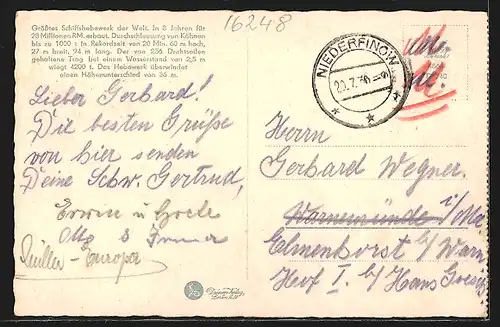 16248
Größtes Schiffshebewerk der Welt. In 8 Jahren für
28 Millionen RM. erbaut. Durchschleusung von Kähnen
bis zu 1000 t in Rekordzeit von 20 Min. 60 m hoch,
27 m breit, 94 m lang. Der von 256 Drahtseilen
gehaltene Trog bei einem Wasserstand von 2,5 m
wiegt 4200 t. Das Hebewerk überwindet
einen Höhenunterschied von 36 m.
NIEDERFINOW
Lieber Gerhard!
Die besten Grüße
von hier senden
Deine Schw. Gertrud,
Erwin u.
Herrn
Gerhard Wegner
Warnemünde i/Me
Elmenhorst b/Warn
Hof I. b/ Hans